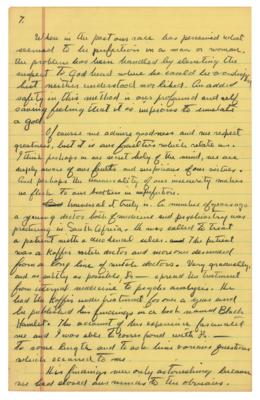 7.
When in the past our race has perceived what
seemed to be perfection in a man or woman,
the problem has been handled by elevating the
suspect to God head where he could be worshiped
but neither understood nor liked. An added
safety in this method is our profound and self
saving feeling that it is impious to emulate
a god.
Of course we admire goodness and we respect
greatness, but it is our frailties which relate us.
I think perhaps in our secret of the mind, we are
deeply aware of our faults and suspicious of our virtues.
And perhaps the universality of our insecurity makes
us flock to our brothers in imperfection.
Universal it truly is. A number of years ago
a young doctor both of medicine and psychiatry was
practicing in South Africa. He was called to treat
a patient with a duodenal ulcer. This patient
was a Kaffir witch doctor and moreover descended
from a long line of witch doctors. Very gradually,
and as subtly as possible, Dr — spread the treatment
from internal medicine to psycho analysis. He
had the Kaffir under treatment for over a year and
he published his findings in a book named Black
Hamlet. The account of his experience fascinated
me and I was able to correspond with Dr —
to some length and to ask him various questions
which occurred to me.
His findings were only astonishing because
we had closed our minds to the obvious.